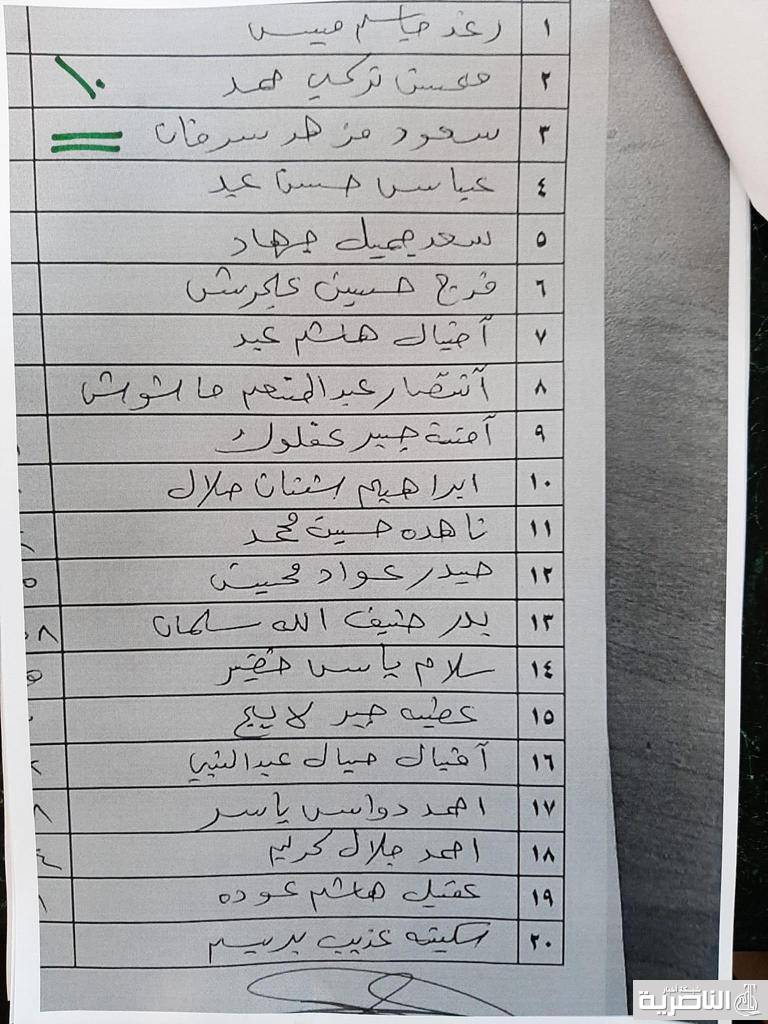 ١ رغد جاسم ميس
٢ محسن تركي حمد ١٠
٣ سعود مزهر سرحان
٤ عباس حسن عيد
٥ سعد جميل جهاد
٦ فرج حسين
٧ أقبال هاشم عبد
٨ أنتصار عبد المنعم حالوش
٩ آمنة جبر
١٠ ابراهيم شنان جلال
١١ ناهده حسين محمد
١٢ حيدر عواد محيسن
١٣ بدر ضيف الله سلمان
١٤ سلام ياس خضير
١٥ عطيه جبر
١٦ أقبال حيال عبد النبي
١٧ احمد دواس ياسر
١٨ احمد جلال كريم
١٩ عقيل هاشم عوده
٢٠ سكينه
شبكة أخبار
الناصرية